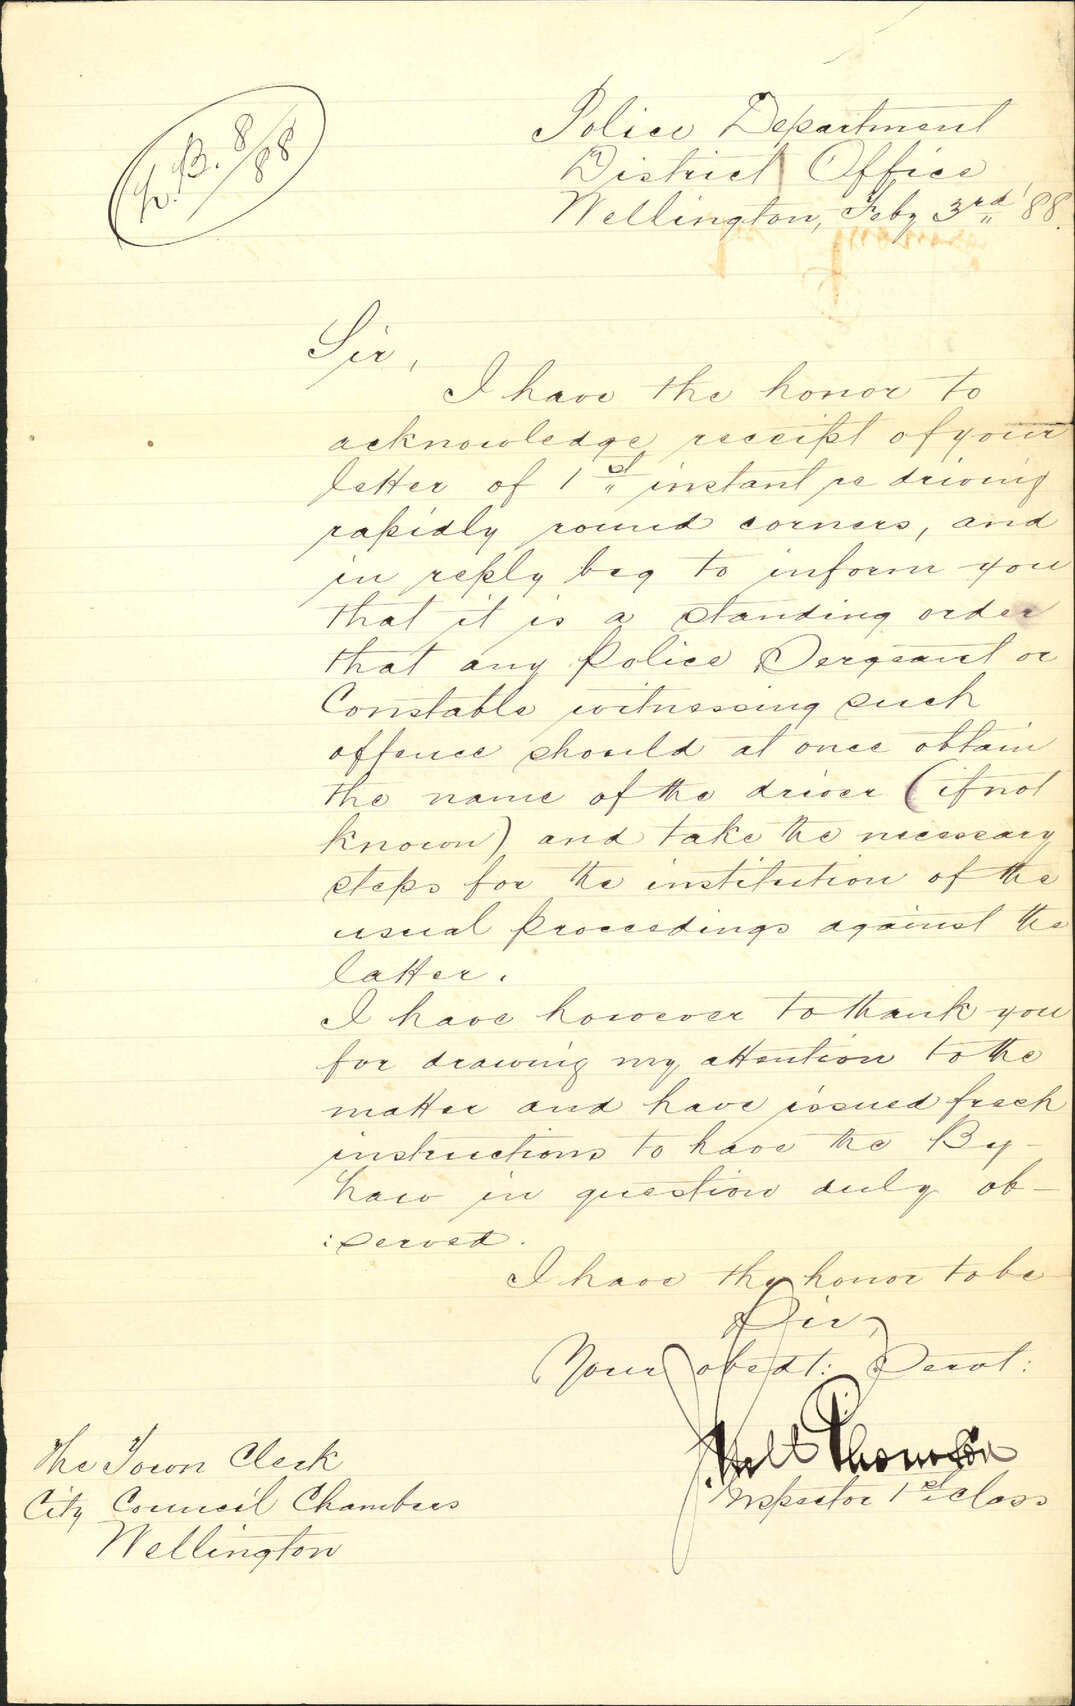 L.B. 8/88
Police Department
District Office
Wellington, Feby 3rd '88.
Sir,
I have the honor to
acknowledge receipt of your
letter of 1st instant re driving
rapidly round corners, and
in reply beg to inform you
that it is a standing order
that any Police Sergeant or
Constable witnessing such
offence should at once obtain
the name of the driver (if not
known) and take the necessary
steps for the institution of the
usual proceedings against the
latter.
I have however to thank you
for drawing my attention to the
matter and have issued fresh
instructions to have the By-
Law in question duly ob-
:served.
I have the honor to be
Sir,
Your obedt: Servt:
Thomson
Inspector 1st class
The Town Clerk
City Council Chambers
Wellington